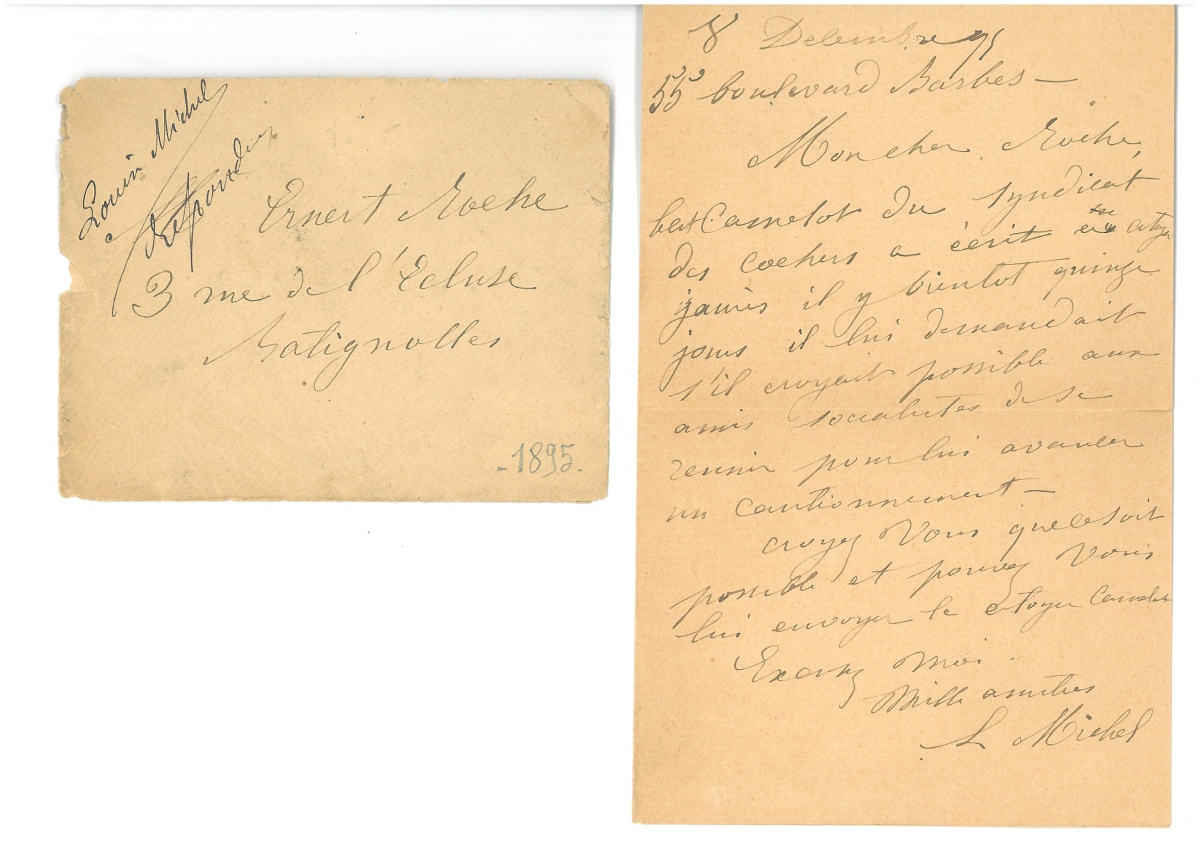 Louise Michel
Répondu
Ernest Roche
3 rue de l'Ecluse
Batignolles
-1895.
8 Decembre 95
55 boulevard Barbes –
Mon cher Roche,
Camelot du syndicat
des cochers a écrit au citoyen
jaurès il y bientot quinze
jours il lui demandait
s'il croyait possible aux
amis socialistes de se
reunir pour lui avancer
un cautionnement –
croyez vous que ce soit
possible et pouvez vous
lui envoyer le citoyen Camelot
Excusez moi
Mille amities
L Michel